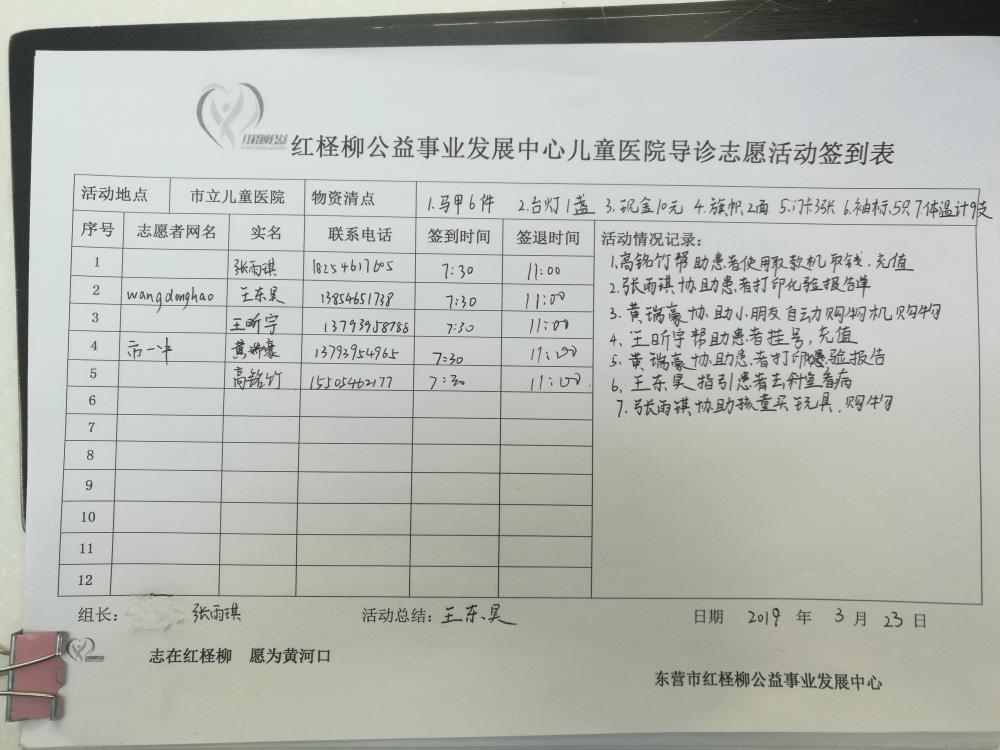 红柽柳公益事业发展中心儿童医院导诊志愿活动签到表
活动地点 市立儿童医院 物资清点 1.马甲6件 2.台灯1盏 3.现金10元 4.旗帜2面 5.门卡3张 6.袖标5只 7.体温计9支
序号 志愿者网名 实名 联系电话 签到时间 签退时间 活动情况记录:
1 张雨琪 18254617605 7:30 11:00 1.高铭竹帮助患者使用取款机取钱.充值
2 wangdonghao 王东昊 13854651738 7:30 11:00 2.张雨琪协助患者打印化验报告单
3 王昕宇 13793958788 7:30 11:00 3.黄瑞豪协助小朋友自动购物机购物
4 市一中 黄瑞豪 13793954965 7:30 11:00 4.王昕宇帮助患者挂号,充值
5 高铭竹 15505462177 7:30 11:00. 5.黄瑞豪协助患者打印化验报告
6 6.王东昊指引患者去科室看病
7 7.张雨琪协助孩童买玩具.购物
8
9
10
11
12
组长: 张雨琪 活动总结: 王东昊 日期 2019 年 3 月 23 日
志在红柽柳 愿为黄河口
东营市红柽柳公益事业发展中心